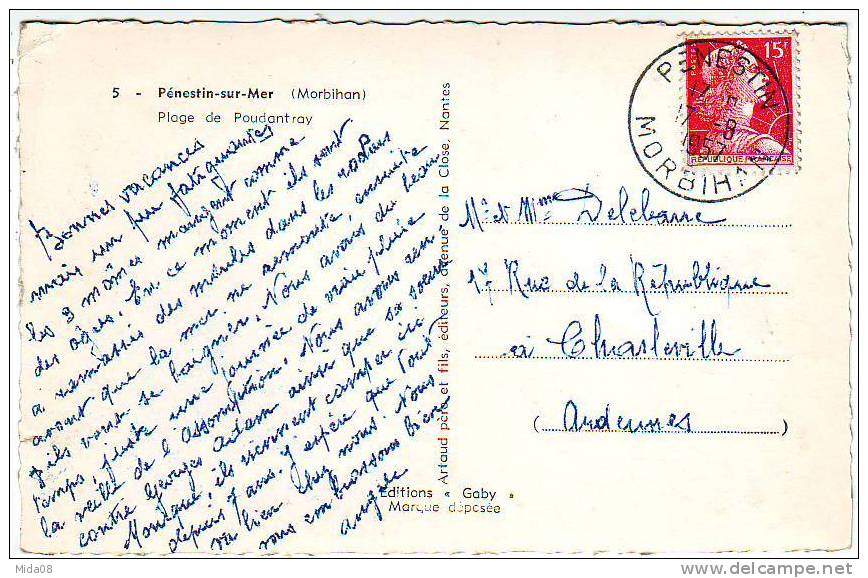 5 - Pénestin-sur-Mer (Morbihan)
Plage de Poudantray
Bonnes vacances
mais un peu fatiguantes
les 3 mômes mangent comme
des ogres. En ce moment ils sont
à ramasser des moules dans les rochers
avant que la mer ne remonte, ensuite
ils vont se baigner. Nous avons du beau
temps, juste une journée de vraie pluie
la veille de l'assomption. Nous avons ren
contré Georges Adam ainsi que sa soeur
Monique, ils viennent camper ici
depuis 7 ans. J'espère que tout
va bien chez vous. Nous
vous embrassons bien
Angèle
Artaud père et fils, éditeurs, avenue de la Close, Nantes
Editions « Gaby »
Marque déposée
PENESTIN
17 -8
1957
MORBIHAN
POSTES
15F
REPUBLIQUE FRANÇAISE
Mr et Mme Delebarre
17 Rue de la République
à Charleville
(Ardennes)
Mida08
delcampe.net